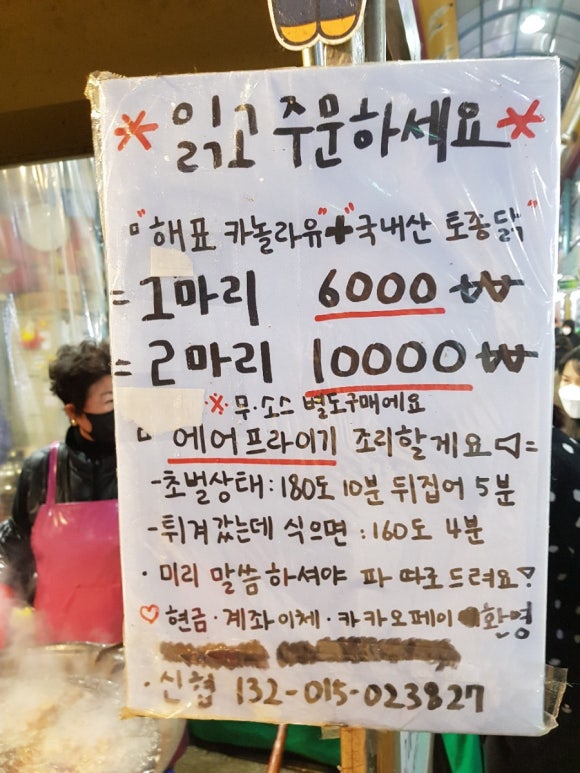 * 읽고 주문하세요 *
▫ "해표 카놀라유" + "국내산 토종닭"
= 1마리 6000 ₩
= 2마리 10000 ₩
※ 무·소스 별도구매에요
▫ 에어프라이기 조리할게요 ◁=
-초벌상태: 180도 10분 뒤집어 5분
-튀겨갔는데 식으면 : 160도 4분
· 미리 말씀하셔야 파 따로드려요?
♡ 현금·계좌이체·카카오페이 환영
· 신협 132-015-023827